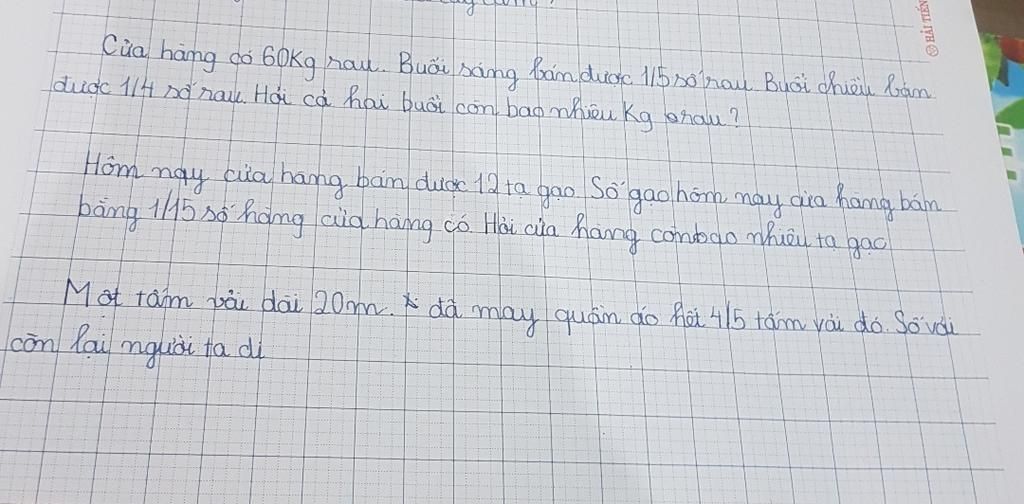 HẢI TIẾN
Cửa hàng có 60Kg rau. Buổi sáng bán được 1/5 số rau. Buổi chiều bán
được 1/4 số rau. Hỏi cả hai buổi còn bao nhiêu Kg rau?
Hôm nay cửa hàng bán được 12 tạ gạo. Số gạo hôm nay cửa hàng bán
bằng 1/15 số hàng cửa hàng có Hỏi cửa hàng còn bao nhiêu tạ gạo
Một tấm vải dài 20m. đã may quần áo hết 4/5 tấm vải đó. Số vải
còn lại người ta di